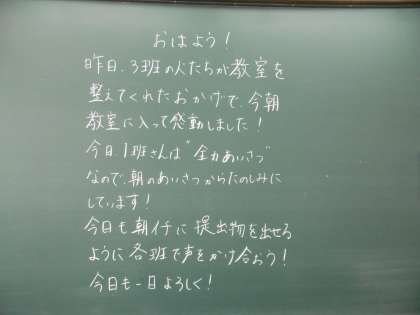 おはよう!
昨日、3班の人たちが教室を
整えてくれたおかげで、今朝
教室に入って感動しました!
今日、1班さんは"全力あいさつ"
なので、朝のあいさつからたのしみに
しています!
今日も朝イチに提出物を出せる
ように各班で声をかけ合おう!
今日も一日よろしく!